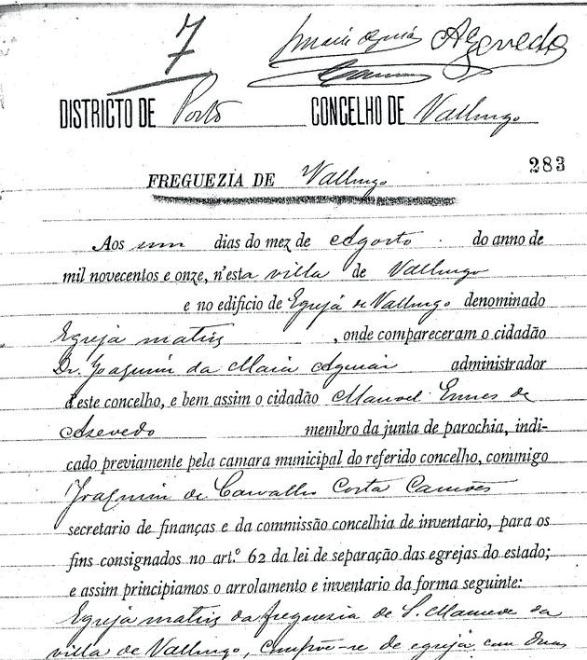 7
Maia Aguiar Azevedo
DISTRICTO DE Porto CONCELHO DE Vallongo
283
FREGUEZIA DE Vallongo
Aos um dias do mez de Agosto do anno de
mil novecentos e onze, n'esta villa de Vallongo
e no edificio de Egreja de Vallongo denominado
Egreja matriz, onde compareceram o cidadão
Dr. Joaquim da Maia Aguiar administrador
d'este concelho, e bem assim o cidadão Manoel Ennes de
Azevedo membro da junta de parochia, indi-
cado previamente pela camara municipal do referido concelho, commigo
Joaquim de Carvalho Costa Camões
secretario de finanças e da commissão concelhia de inventario, para os
fins consignados no art.º 62 da lei de separação das egrejas do estado;
e assim principiamos o arrolamento e inventario da forma seguinte:
Egreja matriz da freguesia de S. Mamede da
villa de Vallongo, compõe-se de egreja com duas